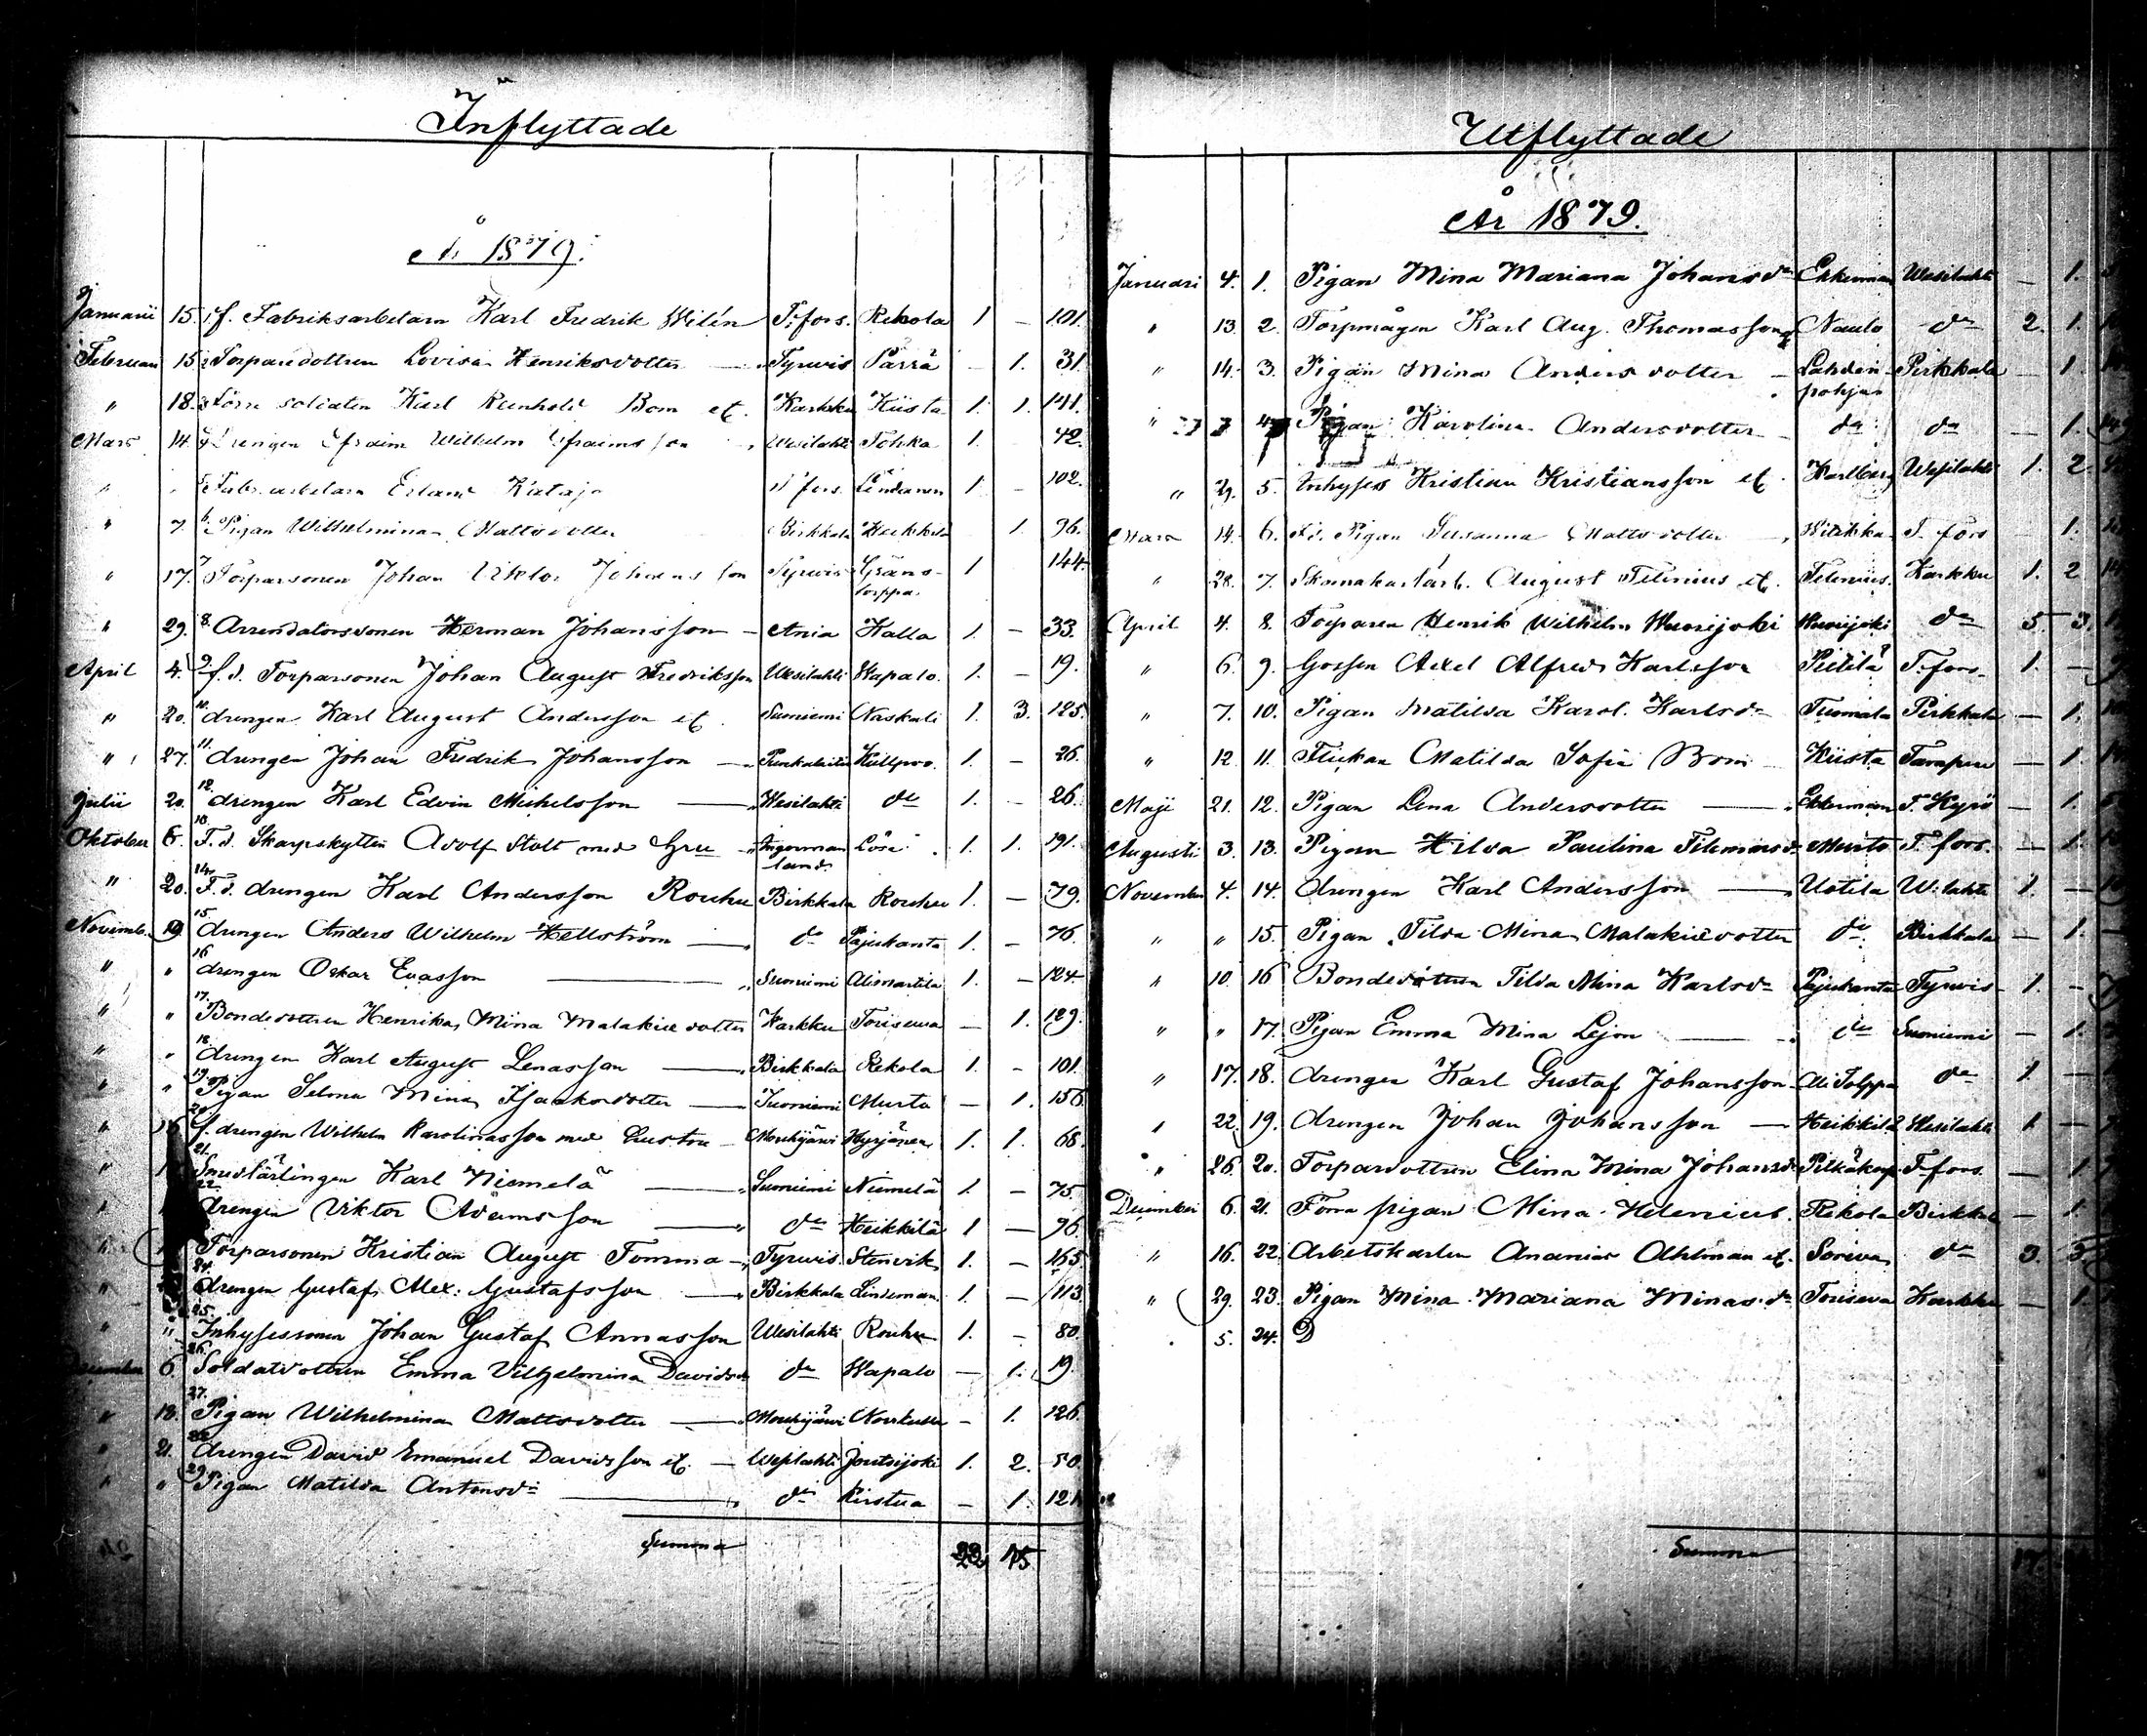 Inflyttade
År 1879.
Januarii 15. 1. f. Fabriksarbetarn Karl Fredrik Wilén T:fors. Rekola 1 – 101.
Februari 15 2 Torparedottren Lovisa Henriksdotter Tyrwis Pärrä – 1. 31.
" 18. 3 Förre soldaten Karl Reinhold Bom et. Karkku Kiista 1. 1. 141.
Mars 14. 4 Drengen Efraim Wilhelm Efraimsson Wesilahti Tohka 1. – 42.
" 5 Fabr. arbetarn Erland Kataja T:fors. Lindeman 1. – 102.
" 7 6. Pigan Wilhelmina Mattsdotter Birkkala Heikkilä 1. 96.
" 17. 7 Torparsonen Johan Viktor Johansson Tyrwis Gräns-
torppa 1 144.
" 29. 8. Arrendatorssonen Herman Johansson – Ania Kalla 1. – 33.
April 4. 9. f. d. Torparsonen Johan August Fredriksson Wesilahti Hapalo. 1. – 19.
" 20. 10. drengen Karl August Andersson et. Suniemi Naskali 1. 3. 125.
" 27. 11. drengen Johan Fredrik Johansson – Punkalaitio Kullpoo. 1. – 26.
Julii 20. 12. drengen Karl Edvin Michelsson Wesilahti do 1. – 26.
Oktober 6. 13. F. d. Skarpskytten Adolf Stolt med Hru Ingerman
land. Lösi. 1. 1. 191.
" 20. 14. F. d. drengen Karl Andersson Rouhu Birkkala Rouhu 1. – 79.
Novemb. 10 15. drengen Anders Wilhelm Hellström do Pajukanta 1. – 76.
" " 16 drengen Oskar Evasson Suoniemi Alismartila 1. – 124.
" " 17. Bondedottren Henrika Mina Malakiedotter Karkku Toriseva – 1. 129.
" " 18. drengen Karl August Lenasson Birkkala Rekola 1. – 101.
" " 19. Pigan Selma Mina Isaksdotter Suoniemi Murto – 1. 156.
" 16 20. f. drengen Wilhelm Karolinasson med hustru Mouhijärvi Hyrjänen 1. 1. 68.
" 21. Smedlärlingen Karl Niemelä Suniemi Niemelä 1. – 75.
22. drengen Viktor Adamsson do Heikkilä 1 – 96.
" Torparsonen Kristian August Tomma Tyrwis Stenvik 1. – 165.
" 24. drengen Gustaf Alex. Gustafsson Birkkala Lindeman 1. – 113.
" " 25. Inhysessonen Johan Gustaf Annasson Wesilahti Rouhu 1. – 80.
December 6. 26. Soldatdottren Emma Vilhelmina Davidsdr do Hapalo – 1. 19.
" 13. 27. Pigan Wilhelmina Mattsdotter Mouhijärvi Norkulla – 1. 126.
" 21. 28. drengen David Emanuel Davidsson et. – Weslahti Joutsijoki 1. 2. 50.
" " 29. Pigan Matilda Antonsdr do Kirstua – 1. 121.
Summa 22 15
Utflyttade
År 1879.
Januari 4. 1. Pigan Mina Mariana Johansdr Ekkerman Wesilahti – 1.
" 13. 2. Torpmågen Karl Aug. Thomasson et Naulo do 2. 1.
" 14. 3. Pigan Mina Andersdotter – Lahden-
pohja Pirkkala – 1.
" 4 Pigan Karolina Andersdotter do do – 1.
" 29. 5. Inhyses Kristian Kristiansson et. Karlberg Wesilahti 1. 2.
Mars 14. 6. F.d. Pigan Susanna Mattsdotter Witikka T:fors 1.
" 28. 7. Skomakarlärl. August Filenius et. Filenius. Karkku 1. 2
April 4. 8. Torparen Henrik Wilhelm Wuorijoki Wuorijoki do 5. 3.
" 6. 9. Gossen Axel Alfred Karlsson Pietilä T:fors. 1. –
" 7. 10. Pigan Matilda Karol. Karlsdr Tuomala Pirkkala – 1.
" 12. 11. Flickan Matilda Sofia Bom Kiista Tampere – 1
Maji 21. 12. Pigan Lena Andersdotter Ekkerman T. Kyrö – 1.
Augusti 3. 13. Pigan Hilda Paulina Filemonsdr Murto T:fors. – 1.
November 4. 14. drengen Karl Andersson Uotila W:lahti 1. –
" " 15. Pigan Tilda Mina Malakiedotter do Birkkala – 1.
" 10. 16 Bondedottren Tilda Mina Karlsdr Pajukanta Tyrwis 1. –
" " 17. Pigan Emma Mina Lejon do Suoniemi – 1.
" 17. 18. drengen Karl Gustaf Johansson Ali Tolppa do 1. –
" 22. 19. drengen Johan Johansson Heikkilä Wesilahti 1 –
" 26. 20. Torpardottren Elina Mina Johansdr T:fors. – 1.
December 6. 21. Förra pigan Mina Helenius. Rekola Birkkala – 1.
" 16. 22. Arbetskarlen Ananias Ahlman et. Soriva do 3. 3.
" 29. 23. Pigan Mina Mariana Minasdr Toriseva Karkku – 1.
5. 24. D
Summa